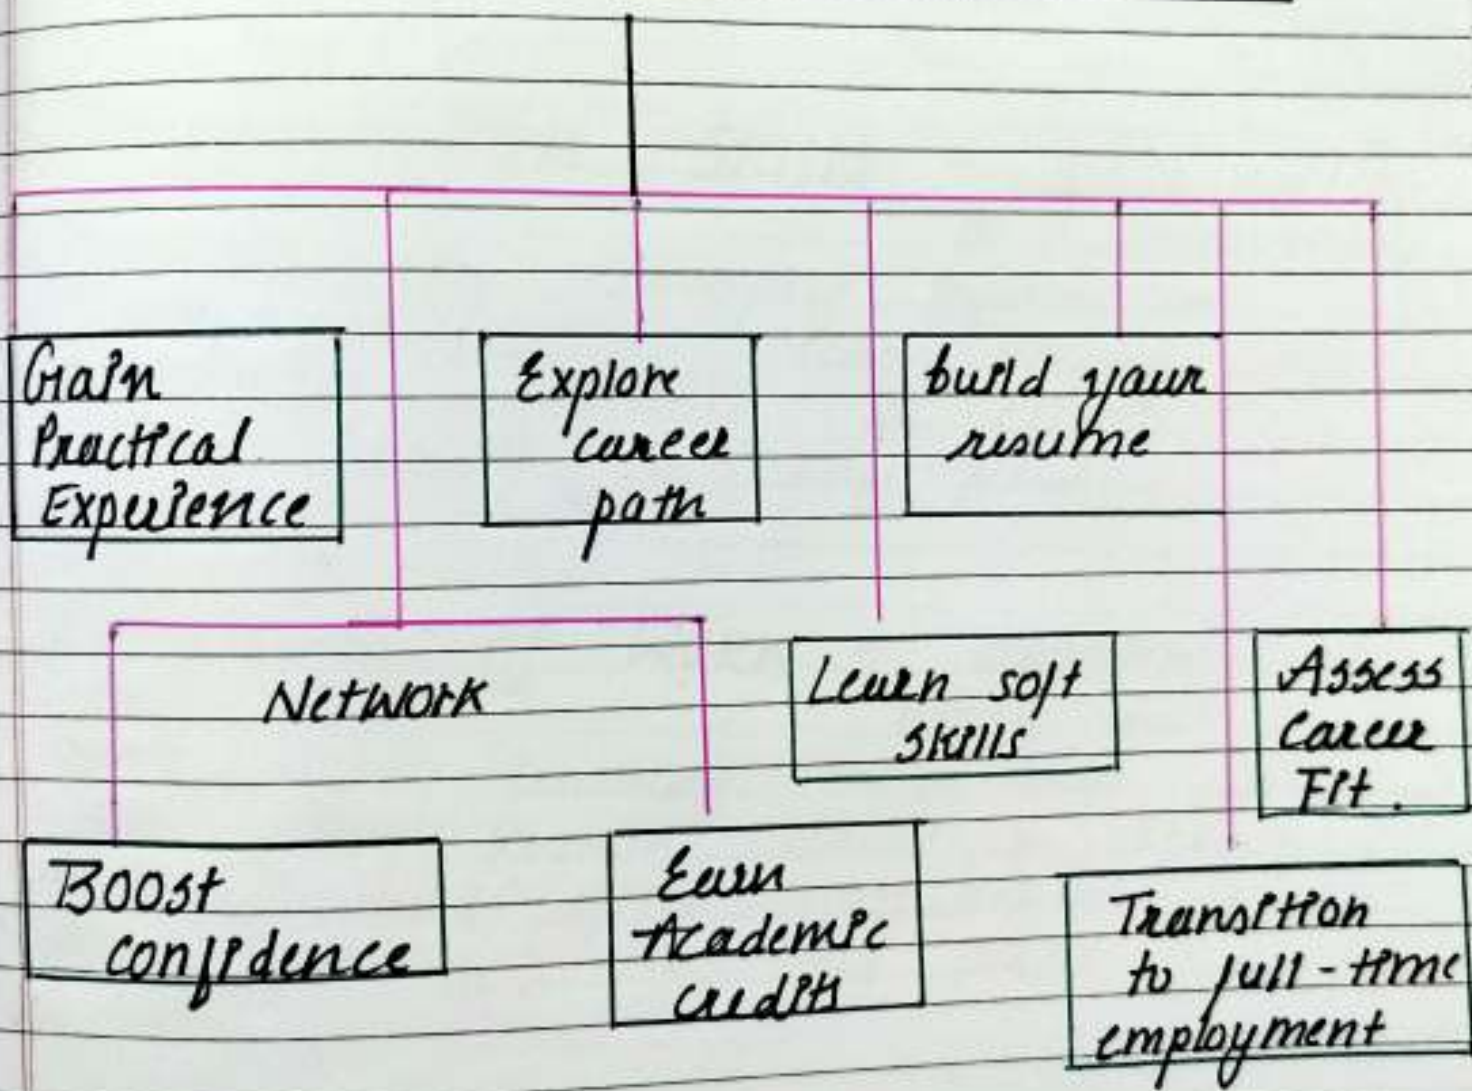 Gain
Practical
Experience
Explore
career
path
build your
resume
Network
Learn soft
skills
Assess
Career
Fit.
Boost
confidence
Earn
Academic
credits
Transition
to full-time
employment